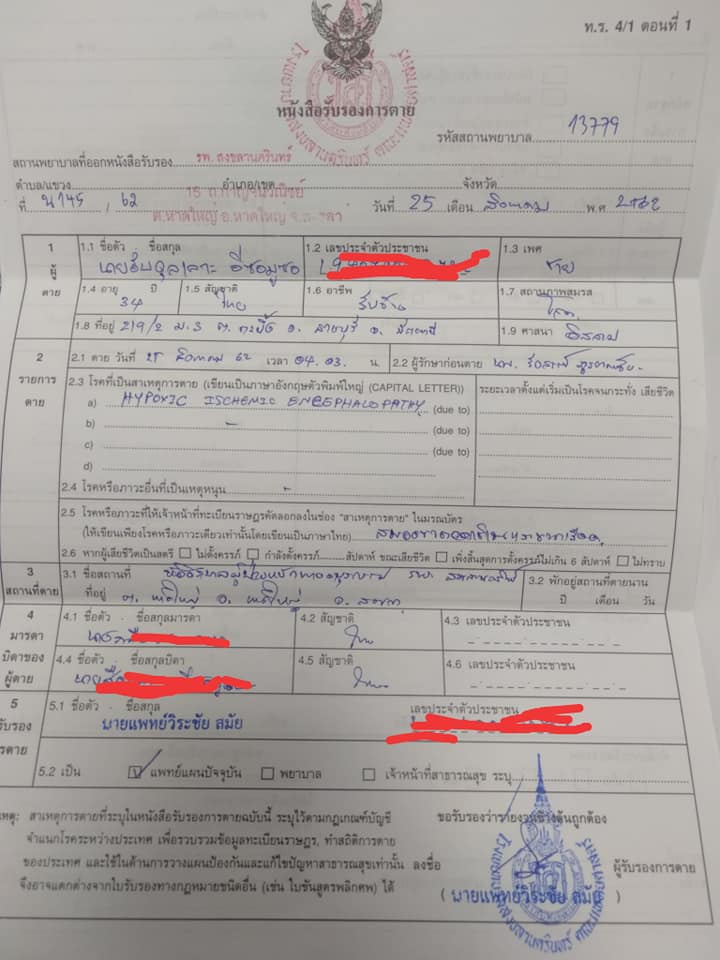 ท.ร. 4/1 ตอนที่ 1
หนังสือรับรองการตาย
รหัสสถานพยาบาล 13779
สถานพยาบาลที่ออกหนังสือรับรอง รพ. สงขลานครินทร์
ตำบล/แขวง อำเภอ/เขต จังหวัด
15 ถ.กาญจนวณิชย์
ต.หาดใหญ่ อ.หาดใหญ่ จ.สงขลา
ที่ น145 / 62 วันที่ 25 เดือน สิงหาคม พ.ศ 2562
1 ผู้ตาย
1.1 ชื่อตัว - ชื่อสกุล
นายอับดุลเลาะ อีซอมูซอ
1.2 เลขประจำตัวประชาชน
1.3 เพศ
ชาย
1.4 อายุ ปี
34
1.5 สัญชาติ
ไทย
1.6 อาชีพ
รับจ้าง
1.7 สถานภาพสมรส
1.8 ที่อยู่ 219/2 ม.3 ต.ตะบิ้ง อ.สายบุรี จ.ปัตตานี
1.9 ศาสนา อิสลาม
2 รายการตาย
2.1 ตาย วันที่ 25 สิงหาคม 62 เวลา 04.03 น.
2.2 ผู้รักษาก่อนตาย นพ.
2.3 โรคที่เป็นสาเหตุการตาย (เขียนเป็นภาษาอังกฤษตัวพิมพ์ใหญ่ (CAPITAL LETTER))
ระยะเวลาตั้งแต่เริ่มเป็นโรคจนกระทั่ง เสียชีวิต
a) HYPOXIC ISCHEMIC ENCEPHALOPATHY (due to)
b) - (due to)
c) (due to)
d)
2.4 โรคหรือภาวะอื่นที่เป็นเหตุหนุน -
2.5 โรคหรือภาวะที่ให้เจ้าหน้าที่ทะเบียนราษฎรคัดลอกลงในช่อง "สาเหตุการตาย" ในมรณบัตร
(ให้เขียนเพียงโรคหรือภาวะเดียวเท่านั้นโดยเขียนเป็นภาษาไทย) สมองขาดออกซิเจนและขาดเลือด
2.6 หากผู้เสียชีวิตเป็นสตรี ไม่ตั้งครรภ์ กำลังตั้งครรภ์ สัปดาห์ ขณะเสียชีวิต เพิ่งสิ้นสุดการตั้งครรภ์ไม่เกิน 6 สัปดาห์ ไม่ทราบ
3 สถานที่ตาย
3.1 ชื่อสถานที่ หออภิบาลผู้ป่วยหนักอายุรกรรม รพ. สงขลานครินทร์
ที่อยู่ ต. หาดใหญ่ อ. หาดใหญ่ จ. สงขลา
3.2 พักอยู่สถานที่ตายนาน
ปี เดือน วัน
4 มารดา บิดาของ ผู้ตาย
4.1 ชื่อตัว - ชื่อสกุลมารดา
4.2 สัญชาติ
ไทย
4.3 เลขประจำตัวประชาชน
4.4 ชื่อตัว - ชื่อสกุลบิดา
4.5 สัญชาติ
ไทย
4.6 เลขประจำตัวประชาชน
5
รับรอง
5.1 ชื่อตัว - ชื่อสกุล
นายแพทย์วิระชัย สมัย
เลขประจำตัวประชาชน
5.2 เป็น แพทย์แผนปัจจุบัน พยาบาล เจ้าหน้าที่สาธารณสุข ระบุ
เหตุ: สาเหตุการตายที่ระบุในหนังสือรับรองการตายฉบับนี้ ระบุไว้ตามกฎเกณฑ์บัญชี
จำแนกโรคระหว่างประเทศ เพื่อรวบรวมข้อมูลทะเบียนราษฎร, ทำสถิติการตาย
ของประเทศ และใช้ในด้านการวางแผนป้องกันและแก้ไขปัญหาสาธารณสุขเท่านั้น
จึงอาจแตกต่างจากใบรับรองทางกฎหมายชนิดอื่น (เช่น ใบชันสูตรพลิกศพ) ได้
ขอรับรองว่ารายงานข้างต้นถูกต้อง
ลงชื่อ ผู้รับรองการตาย
( นายแพทย์วิระชัย สมัย )